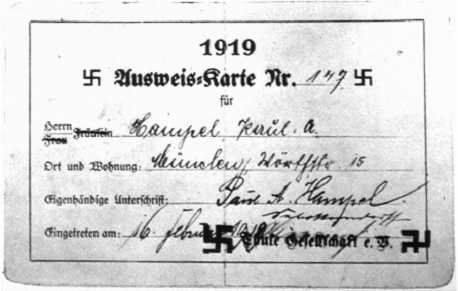 1919
Ausweis-Karte Nr. 147
für
Herrn Fräulein Hampel, Paul. A.
Frau
Ort und Wohnung: München, Wörthstr 15
Eigenhändige Unterschrift: Paul A. Hampel
Eingetreten am: 16. Februar 1919 Thule Gesellschaft e. V.